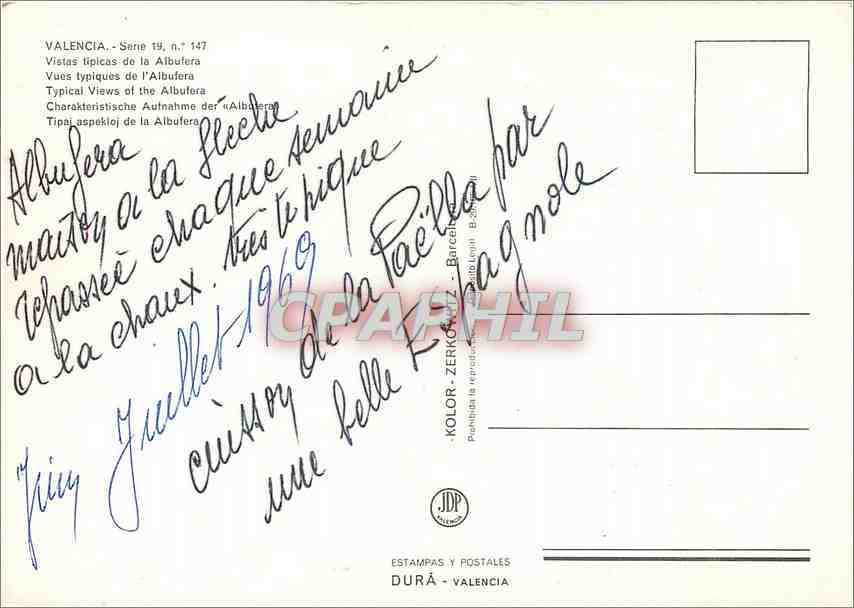 VALENCIA. - Serie 19, n.° 147
Vistas típicas de la Albufera
Vues typiques de l'Albufera
Typical Views of the Albufera
Charakteristische Aufnahme der «Albufera»
Tipaj aspekloj de la Albufera
Albufera
maison a la flèche
repassée chaque semaine
a la chaux. très typique
Juin Juillet 1969
cuisson de la Paëlla par
une belle Espagnole
CPAPHIL
KOLOR - ZERKOWITZ - Barcelona
Prohibida la reproducción Depósito Legal B-29
JDP
VALENCIA
ESTAMPAS Y POSTALES
DURÁ - VALENCIA